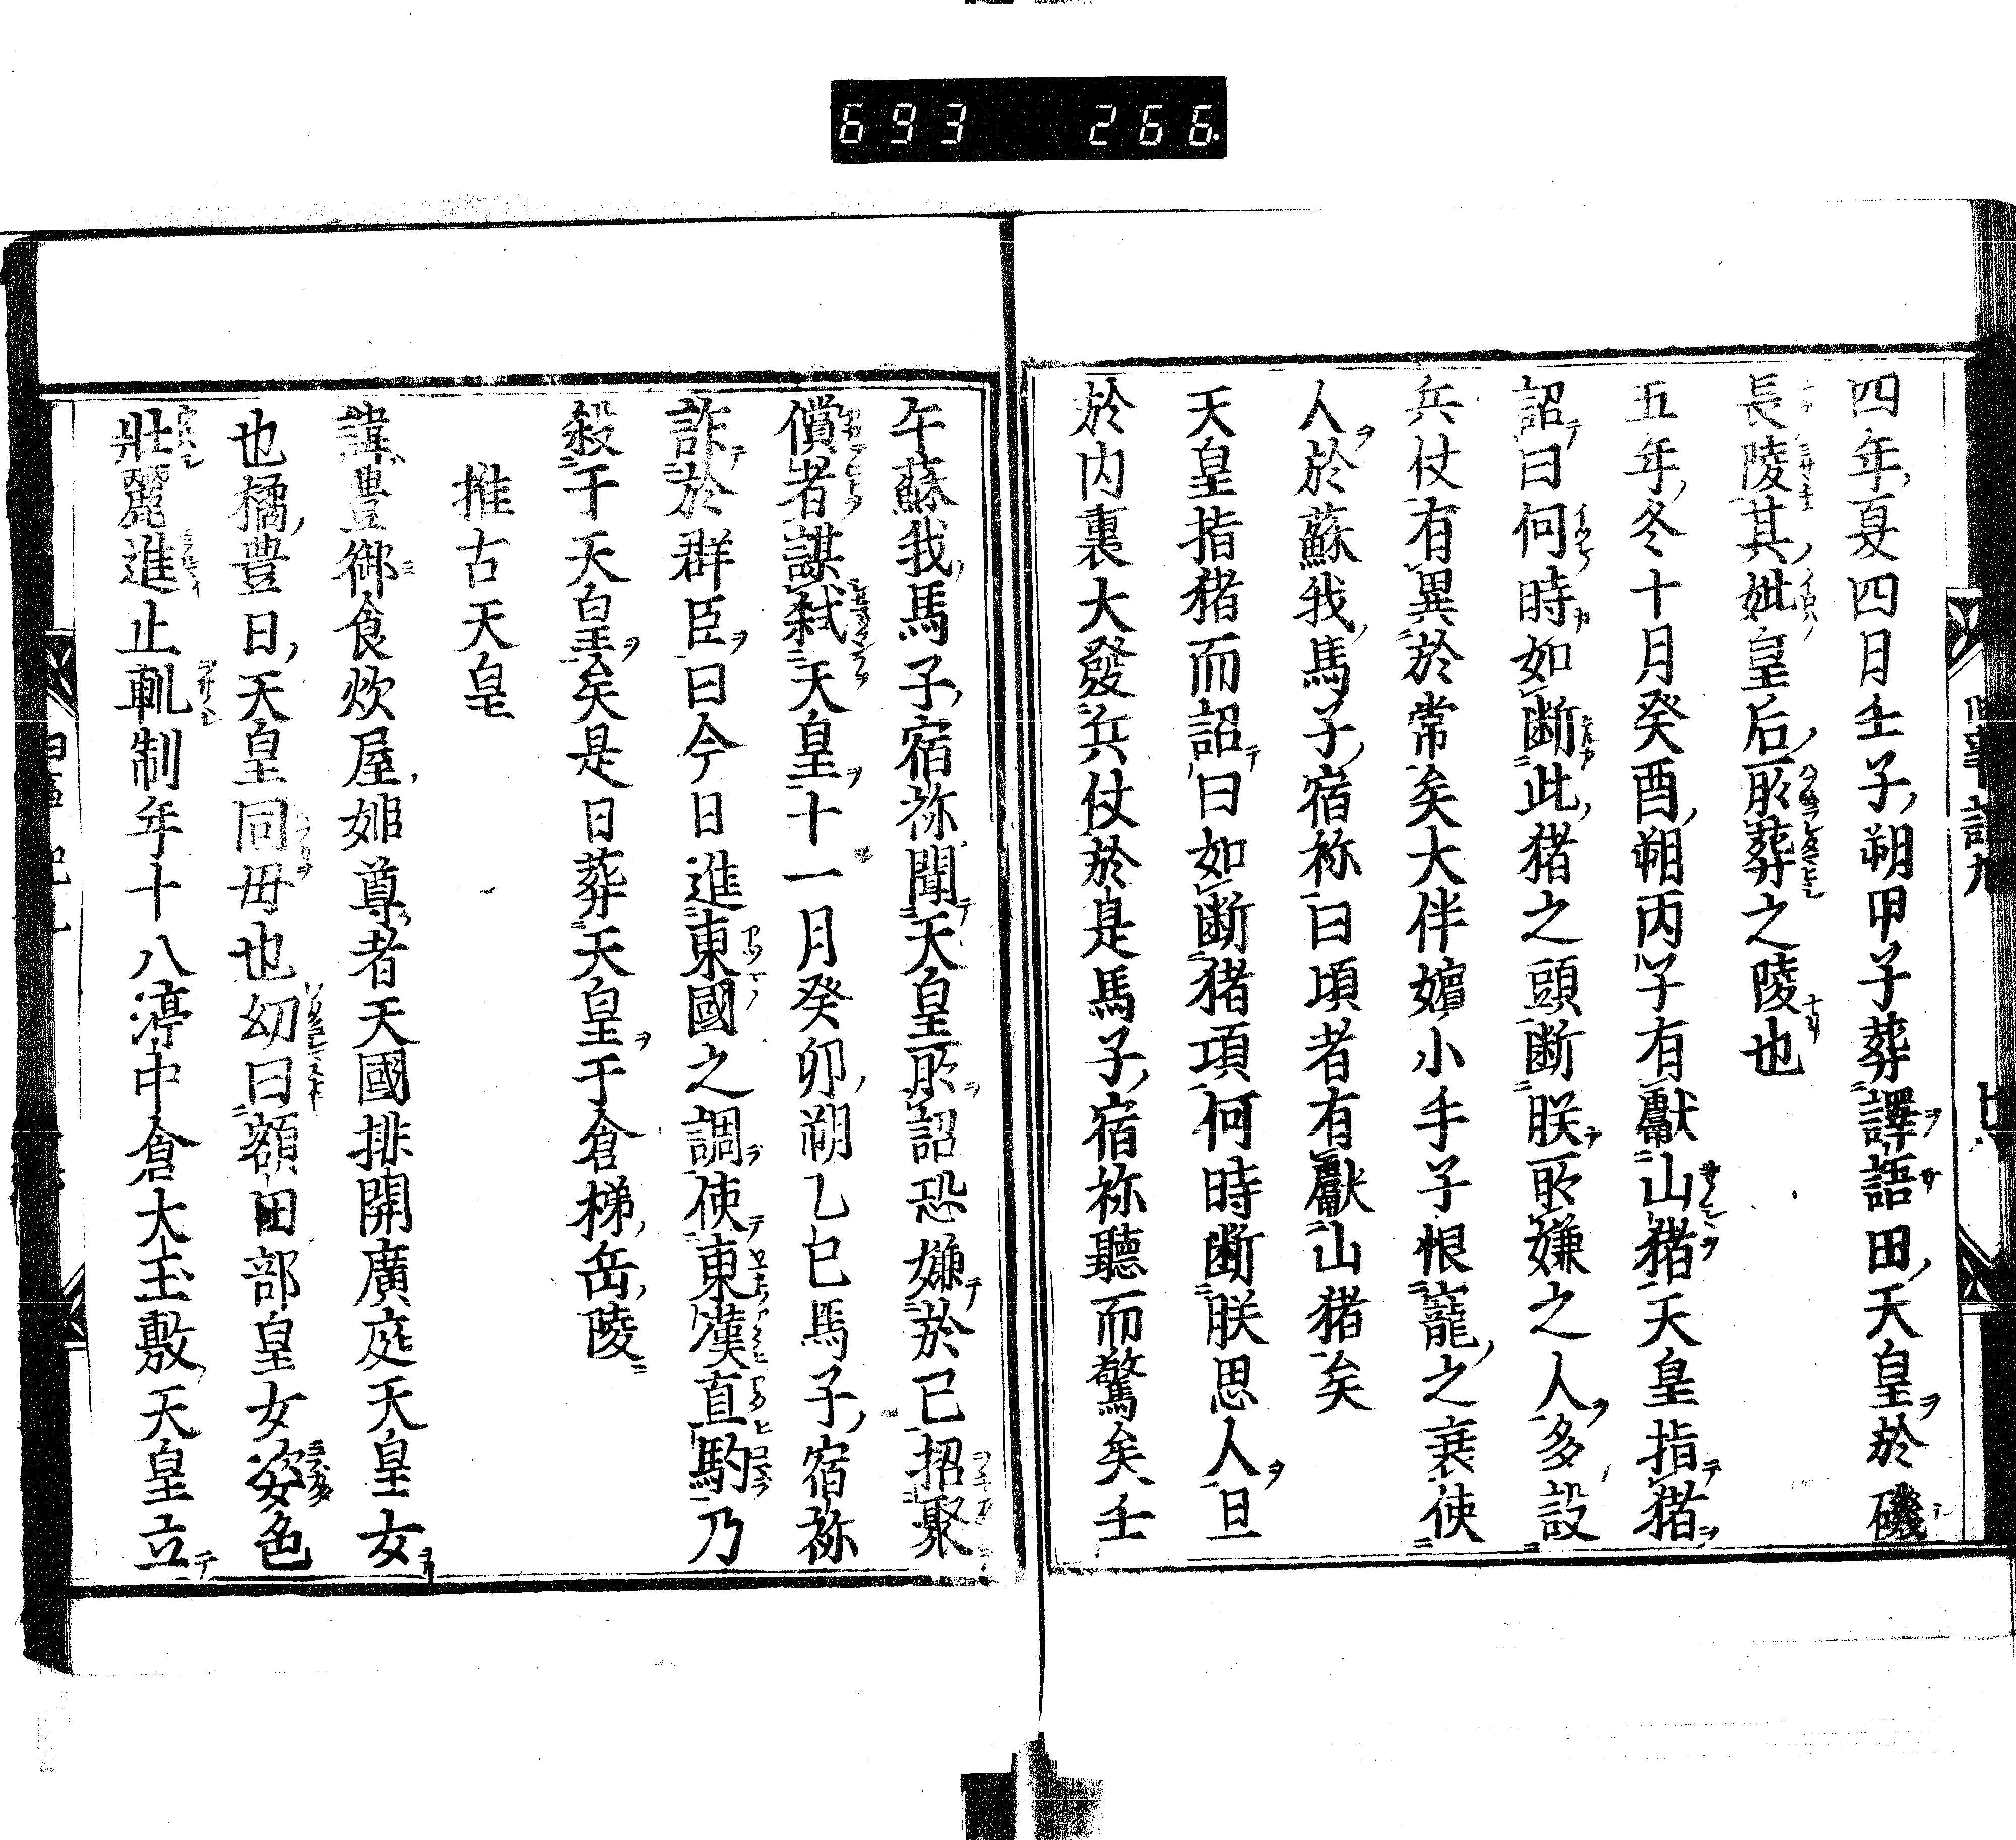 693 266
四年夏四月壬子朔甲子葬譯語田天皇於磯
長陵其妣皇后所葬之陵也
五年冬十月癸酉朔丙子有獻山猪天皇指猪
詔曰何時如断此猪之頭断朕所嫌之人多設
兵仗有異於常矣大伴嬪小手子恨寵之衰使
人於蘇我馬子宿祢曰頃者有獻山猪矣
天皇指猪而詔曰如断猪項何時断朕思人且
於内裏大發兵仗於是馬子宿祢聽而驚矣壬
午蘇我馬子宿祢聞天皇所詔恐嫌於己招聚
儻者謀弑天皇十一月癸卯朔乙巳馬子宿祢
詐於群臣曰今日進東國之調使東漢直駒乃
殺于天皇矣是日葬天皇于倉梯岳陵
推古天皇
諱豊御食炊屋姫尊者天國排開廣庭天皇女
也橘豊日天皇同母也幼曰額田部皇女姿色
壯麗進止軌制年十八渟中倉大玉敷天皇立